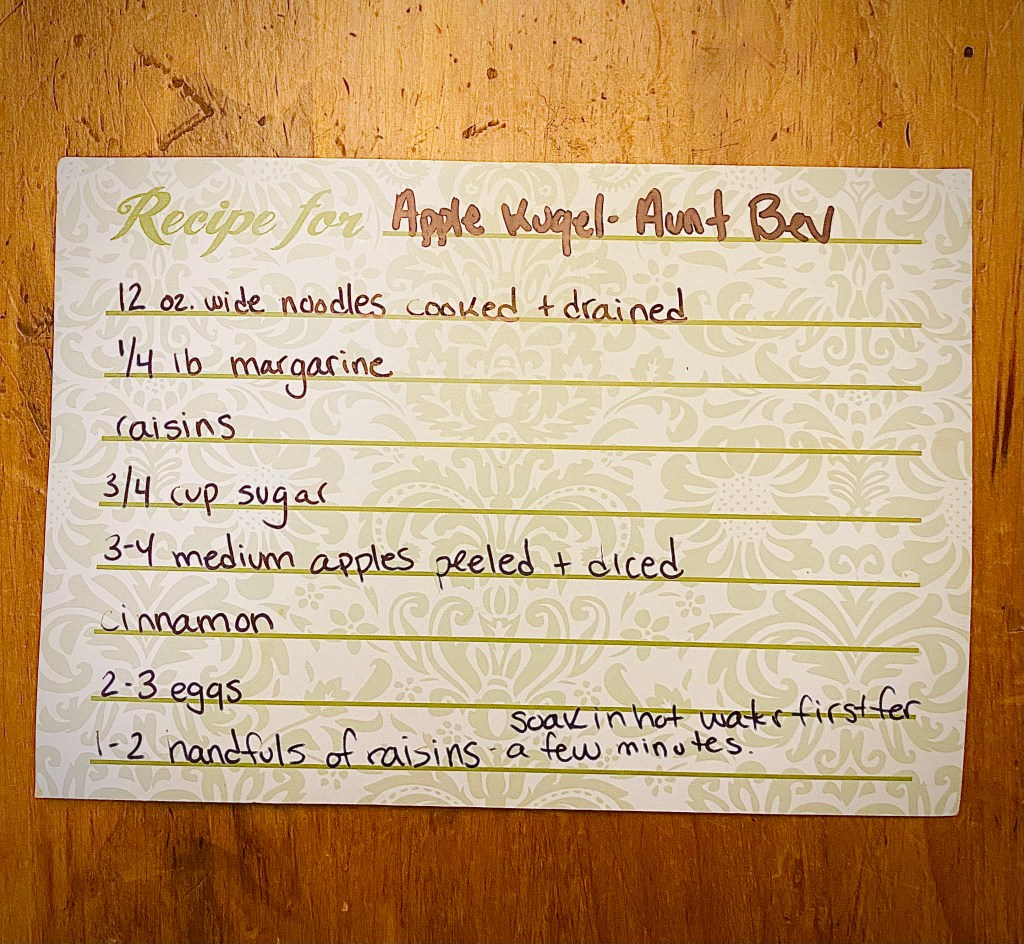 Recipe for Apple Kugel - Aunt Bev
12 oz. wide noodles cooked + drained
1/4 lb margarine
raisins
3/4 cup sugar
3-4 medium apples peeled + diced
cinnamon
2-3 eggs
1-2 handfuls of raisins - soak in hot water first fer
a few minutes.